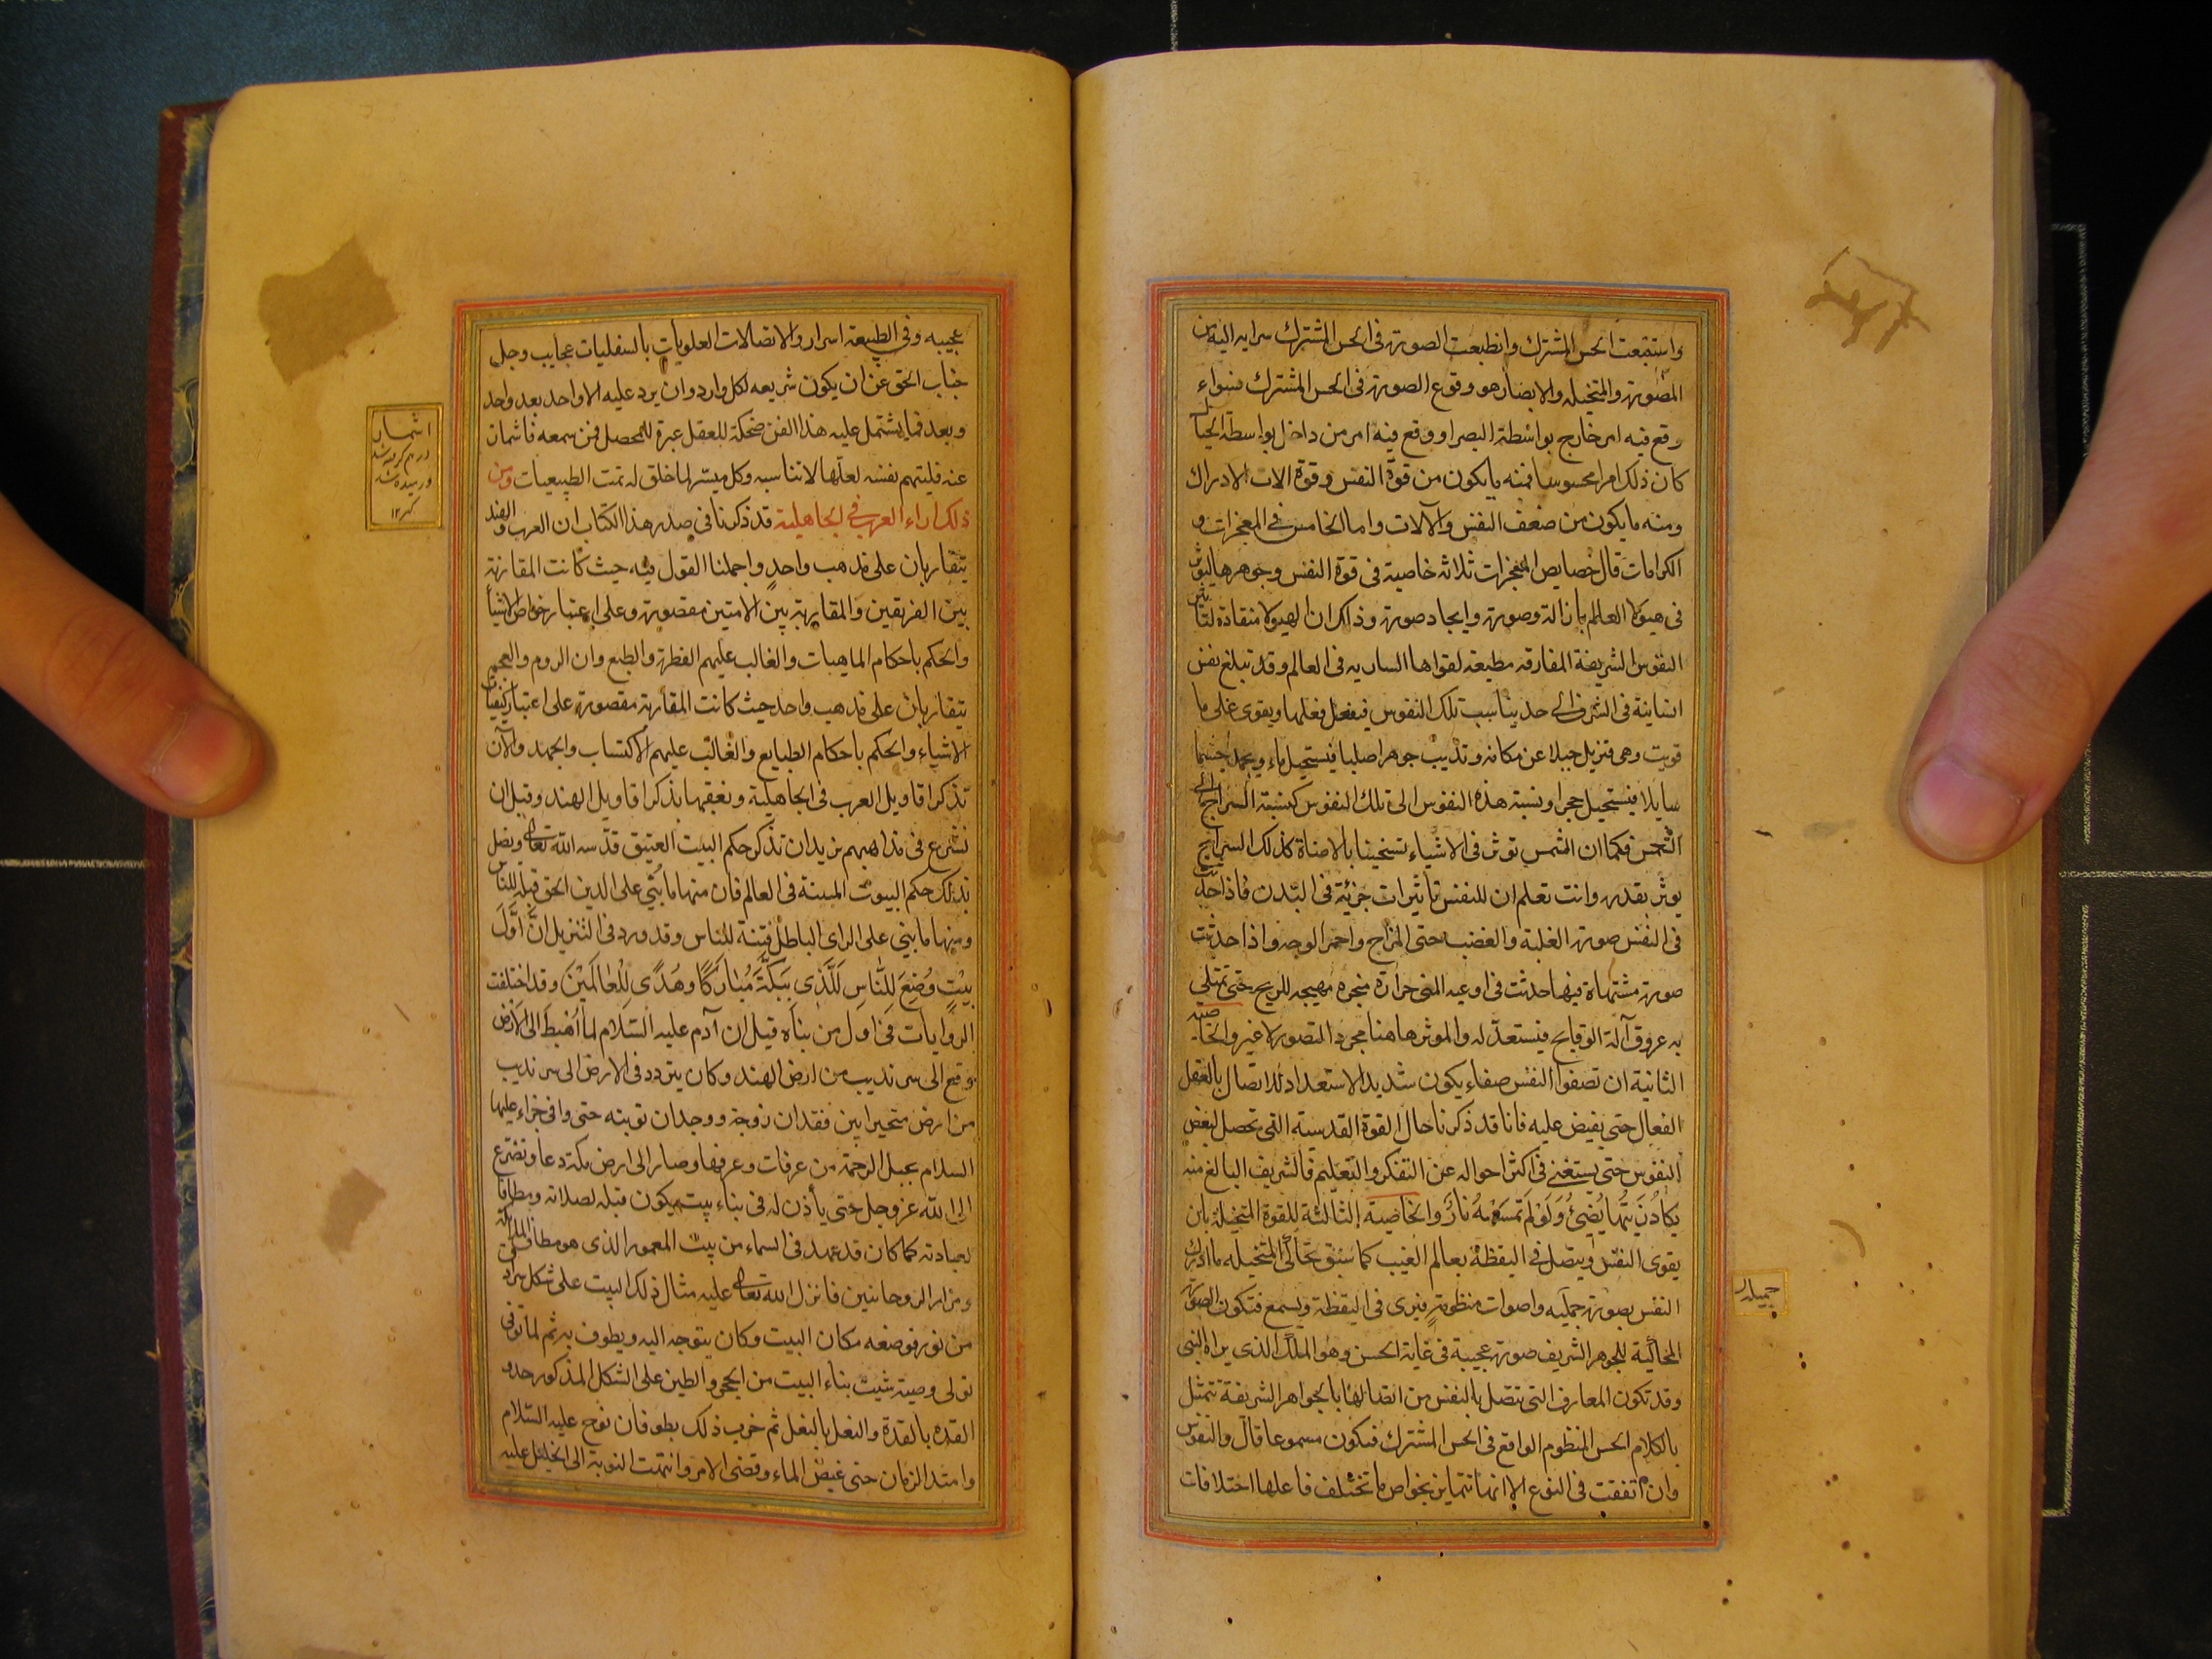 واستتبعت الحس المشترك وانطبعت الصورة فى الحس المشترك سراية اليه من
المصورة والمتخيلة والابصار هو وقوع الصورة فى الحس المشترك فسواء
وقع فيه امر خارج بواسطة البصر او وقع فيه امر من داخل بواسطة الخيال
كان ذلك امرا محسوسا فمنه ما يكون من قوة النفس وقوة الات الادراك
ومنه ما يكون من ضعف النفس والآلات واما الخامس فى المعجزات و
الكرامات قال خصايص المعجزات ثلاثه خاصية فى قوة النفس وجوهرها ليؤثر
فى هيولا العالم بازالة وصورة وايجاد صورة وذلك ان الهيولا منقادة لتاثير
النفوس الشريفة المفارقه مطيعة لقواها الساريه فى العالم وقد تبلغ نفس
انسانية فى الشرف الى حد يناسب تلك النفوس فيفعل فعلها ويقوى على ما
قويت وهى فتزيل جبلا عن مكانه وتذيب جوهرا صلبا فيستحيل ماء ويجمد جسما
سايلا فيستحيل حجرا ونسبة هذه النفوس الى تلك النفوس كنسبة السراج الى
الشمس فكما ان الشمس توثر فى الاشياء تسخينا بالاضاة كذلك السراج
يوثر بقدره وانت تعلم ان للنفس تاثيرات جزئية فى البدن فاذا حدثت
فى النفس صورة الغلبة والغضب حتى المزاج واحمر الوجه واذا حدثت
صورة مشتهاة فيها حدثت فى اوعيه المنى حرارة مبخره مهيجه للريح حتى تمتلى
به عروق آلة الوقاع فيستعد له والموثر هاهنا مجرد التصور لا غير والخاصيه
الثانية ان تصفوا النفس صفاء يكون شديد الاستعداد للاتصال بالعقل
الفعال حتى يفيض عليه فانا قد ذكرنا حال القوة القدسية التى تحصل لبعض
النفوس حتى يستغنى فى اكثر احواله عن التفكر والتعليم فالشريف البالغ منه
يكاد زيتها يضئ ولو لم تمسسه نار والخاصية الثالثة للقوة المتخيلة بان
يقوى النفس ويتصل فى اليقظة بعالم الغيب كما سبق تحاكى المتخيله ما ادرك
النفس بصورة جميلة واصوات منظومة فيرى فى اليقظة ويسمع فتكون الصورة
المحاكية للجوهر الشريف صورة عجيبة فى غاية الحسن وهو الملك الذى يراه النبى
وقد تكون المعارف التى تتصل بالنفس من اتصالها بالجواهر الشريفة تتمثل
بالكلام الحسن المنظوم الواقع فى الحس المشترك فتكون مسموعا قال والنفوس
وان اتفقت فى النوع الا انها تتمايز بخواص ما تختلف فاعلها اختلافات
جميله
عجيبه وفى الطبيعة اسرار والاتصالات العلويات بالسفليات عجايب وجل
جناب الحق عن ان يكون شريعه لكل وارد وان يرد عليه الا واحد بعد واحد
وبعد فما يشتمل عليه هذا الفن ضحكة للعقل عبرة للمحصل فمن سمعه فاشمان
عنه فليتهم نفسه لعلها لا تناسبه وكل ميسر لما خلق له تمت الطبيعيات ومن
ذلك اراء العرب فى الجاهلية قد ذكرنا فى صدر هذا الكتاب ان العرب والهند
يتقاربان على مذهب واحد واجملنا القول فيه حيث كانت المقارنة
بين الفريقين والمقاربة بين الامتين مقصورة وعلى اعتبار خواص الاشيا
والحكم باحكام الماهيات والغالب عليهم الفطرة والطبع وان الروم والعجم
يتقاربان على مذهب واحد حيث كانت المقاربة مقصورة على اعتبار كيفيات
الاشياء والحكم باحكام الطبايع والغالب عليهم الاكتساب والجهد والآن
نذكر اقاويل العرب فى الجاهلية ونعقبها بذكر اقاويل الهند وقبل ان
نشرع فى مذاهبهم نريد ان نذكر حكم البيت العتيق قدسه الله تعالى ونصل
بذلك حكم البيوت المبينة فى العالم فان منها ما بنى على الدين الحق قبلة للناس
ومنها ما بنى على الراى الباطل فتنة للناس وقد ورد فى التنزيل انَّ اوَّلَ
بيْتٍ وُضِعَ لِلنَّاسِ لَلَّذى بِبَكَّةَ مُبارَكًا وهُدًى لِلْعالَمِيْنَ وقد اختلفت
الروايات فى اول من بناه قيل ان آدم عليه السلام لما اُهْبِطَ الى الارض
وقع الى سرنديب من ارض الهند وكان يتردد فى الارض الى سرنديب
من ارض متحيرا بين فقدان زوجة ووجدان توبته حتى وافى حراء عليها
السلام بجبل الرحمة من عرفات وعرفها وصار الى ارض مكة ودعا وتضرع
الى الله عز وجل حتى يأذن له فى بناء بيت يكون قبلة لصلاته ومطافا
لعبادته كما كان قد عهد فى السماء من بيت المعمور الذى هو مطاف الملائكة
ومزار الروحانيين فانزل الله تعالى عليه مثال ذلك البيت على شكل سرادق
من نور فوضعه مكان البيت وكان يتوجه اليه ويطوف به ثم لما توفى
تولى وصيه شيث بناء البيت من الحجر والطين على الشكل المذكور حدو
القده بالقدة والنعل بالنعل ثم خرب ذلك بطوفان نوح عليه السلام
وامتد الزمان حتى غيض الماء وقضى الامر وانتهت النوبة الى الخليل عليه
اشماز